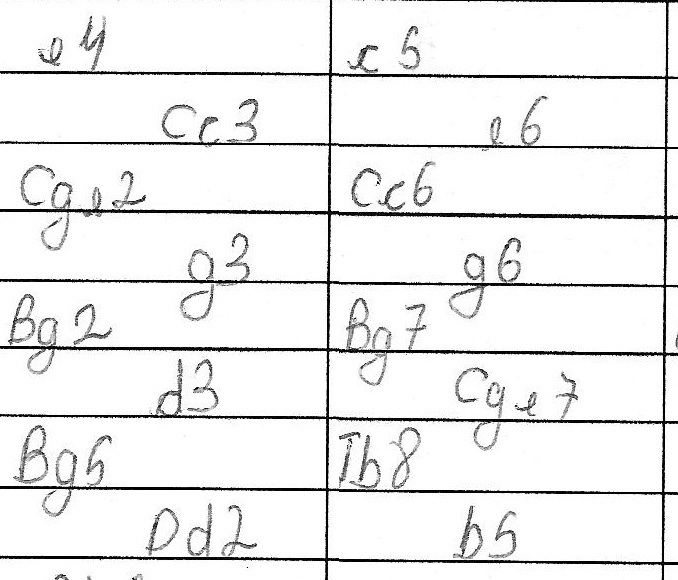 e4 c5
Cc3 e6
Cge2 Cc6
g3 g6
Bg2 Bg7
d3 Cge7
Bg5 Tb8
Dd2 b5